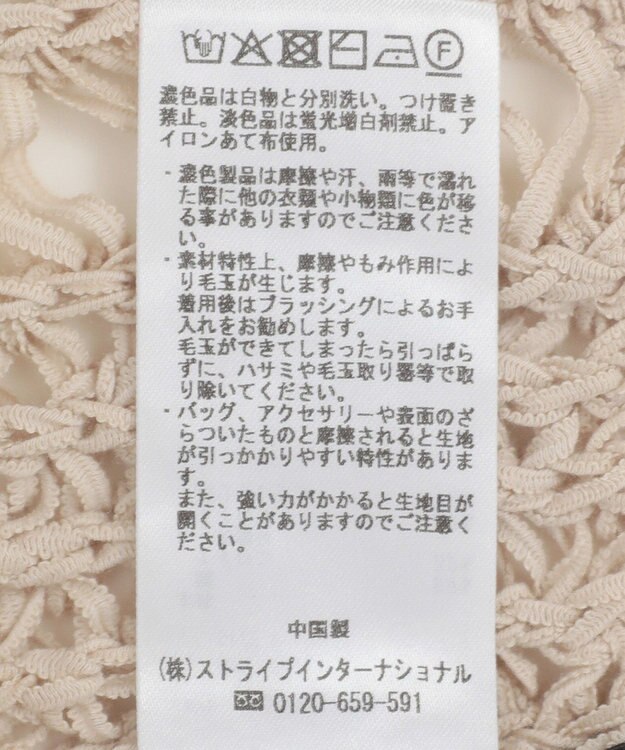 濃色品は白物と分別洗い。つけ置き
禁止。淡色品は蛍光増白剤禁止。ア
イロンあて布使用。
・濃色製品は摩擦や汗、雨等で濡れ
た際に他の衣類や小物類に色が移
る事がありますのでご注意くださ
い。
・素材特性上、摩擦やもみ作用によ
り毛玉が生じます。
着用後はブラッシングによるお手
入れをお勧めします。
毛玉ができてしまったら引っぱら
ずに、ハサミや毛玉取り器等で取
り除いてください。
・バッグ、アクセサリーや表面のざ
らついたものと摩擦されると生地
が引っかかりやすい特性がありま
す。
また、強い力がかかると生地目が
開くことがありますのでご注意く
ださい。
中国製
(株)ストライプインターナショナル
0120-659-591
F